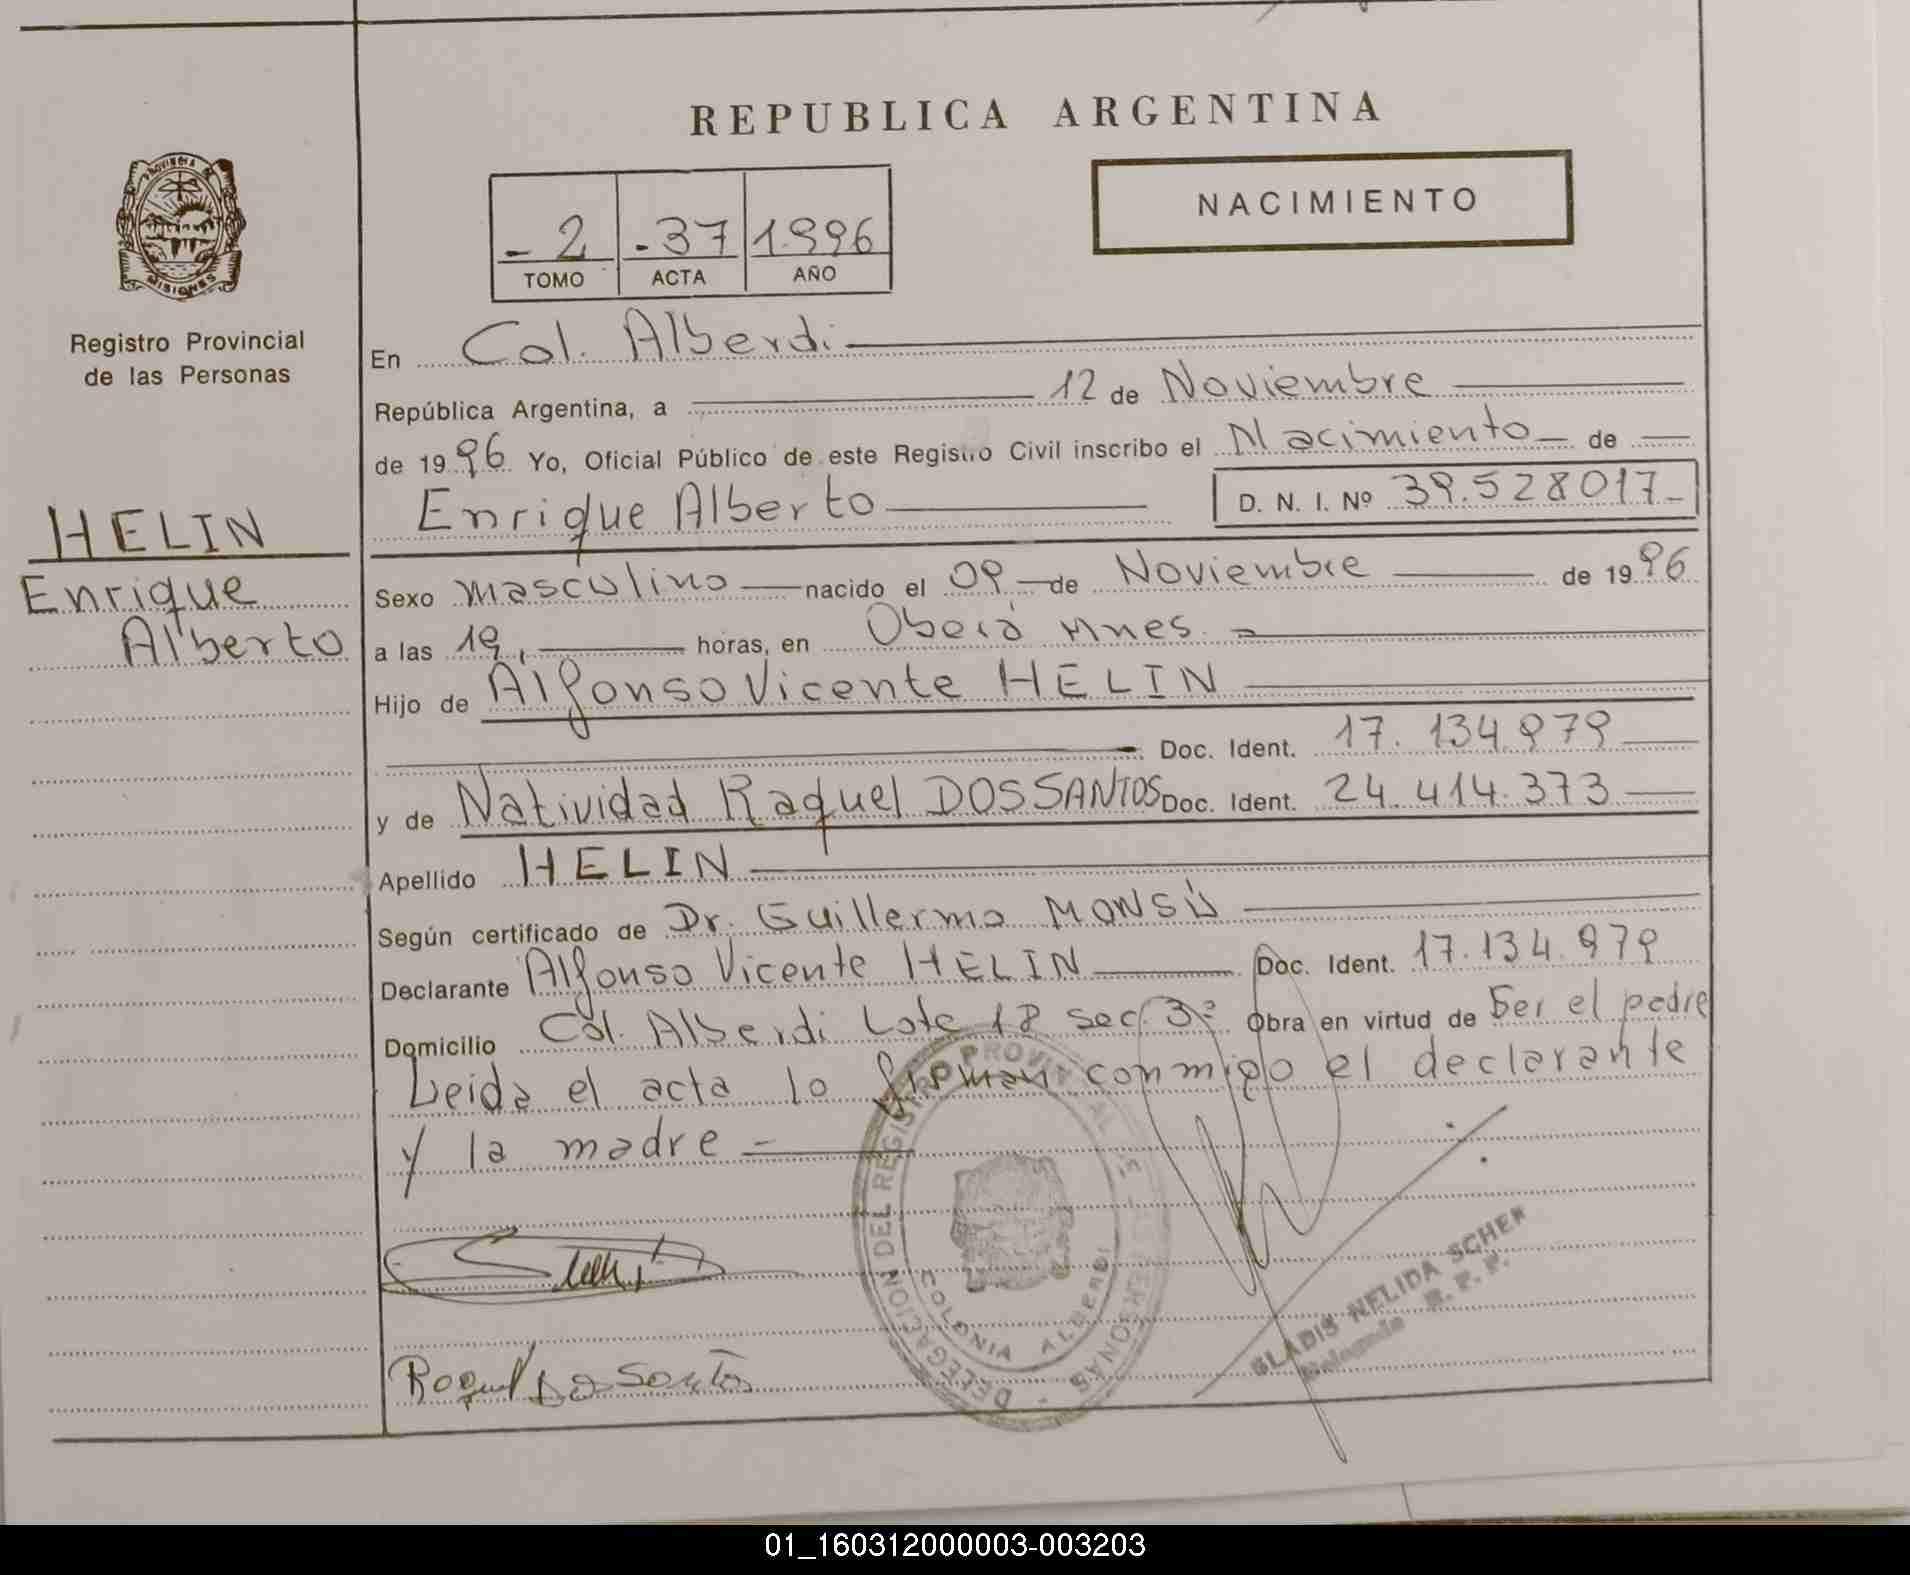 REPUBLICA ARGENTINA
NACIMIENTO
- 2 - 37 1.996
TOMO ACTA AÑO
PROVINCIA DE
MISIONES
Registro Provincial
de las Personas
HELIN
Enrique
Alberto
En Col. Alberdi
República Argentina, a 12 de Noviembre
de 1996 Yo, Oficial Público de este Registro Civil inscribo el Nacimiento de
Enrique Alberto D. N. I. Nº 39.528017-
Sexo masculino nacido el 09 de Noviembre de 1996
a las 19, horas, en Oberá Mnes. -
Hijo de Alfonso Vicente HELIN
Doc. Ident. 17. 134.979
y de Natividad Raquel DOS SANTOS Doc. Ident. 24.414.373
Apellido HELIN
Según certificado de Dr. Guillermo
Declarante Alfonso Vicente HELIN Doc. Ident. 17.134.979
Domicilio Col. Alberdi Lote 18 sec. 3ª Obra en virtud de Ser el padre
Leida el acta lo firman conmigo el declarante
y la madre -
DELEGACION DEL REGISTRO PROVINCIAL DE LAS PERSONAS -
COLONIA ALBERDI
Raquel Dos Santos
GLADIS NELIDA SCHER
Delegada R. P. P.
01_160312000003-003203